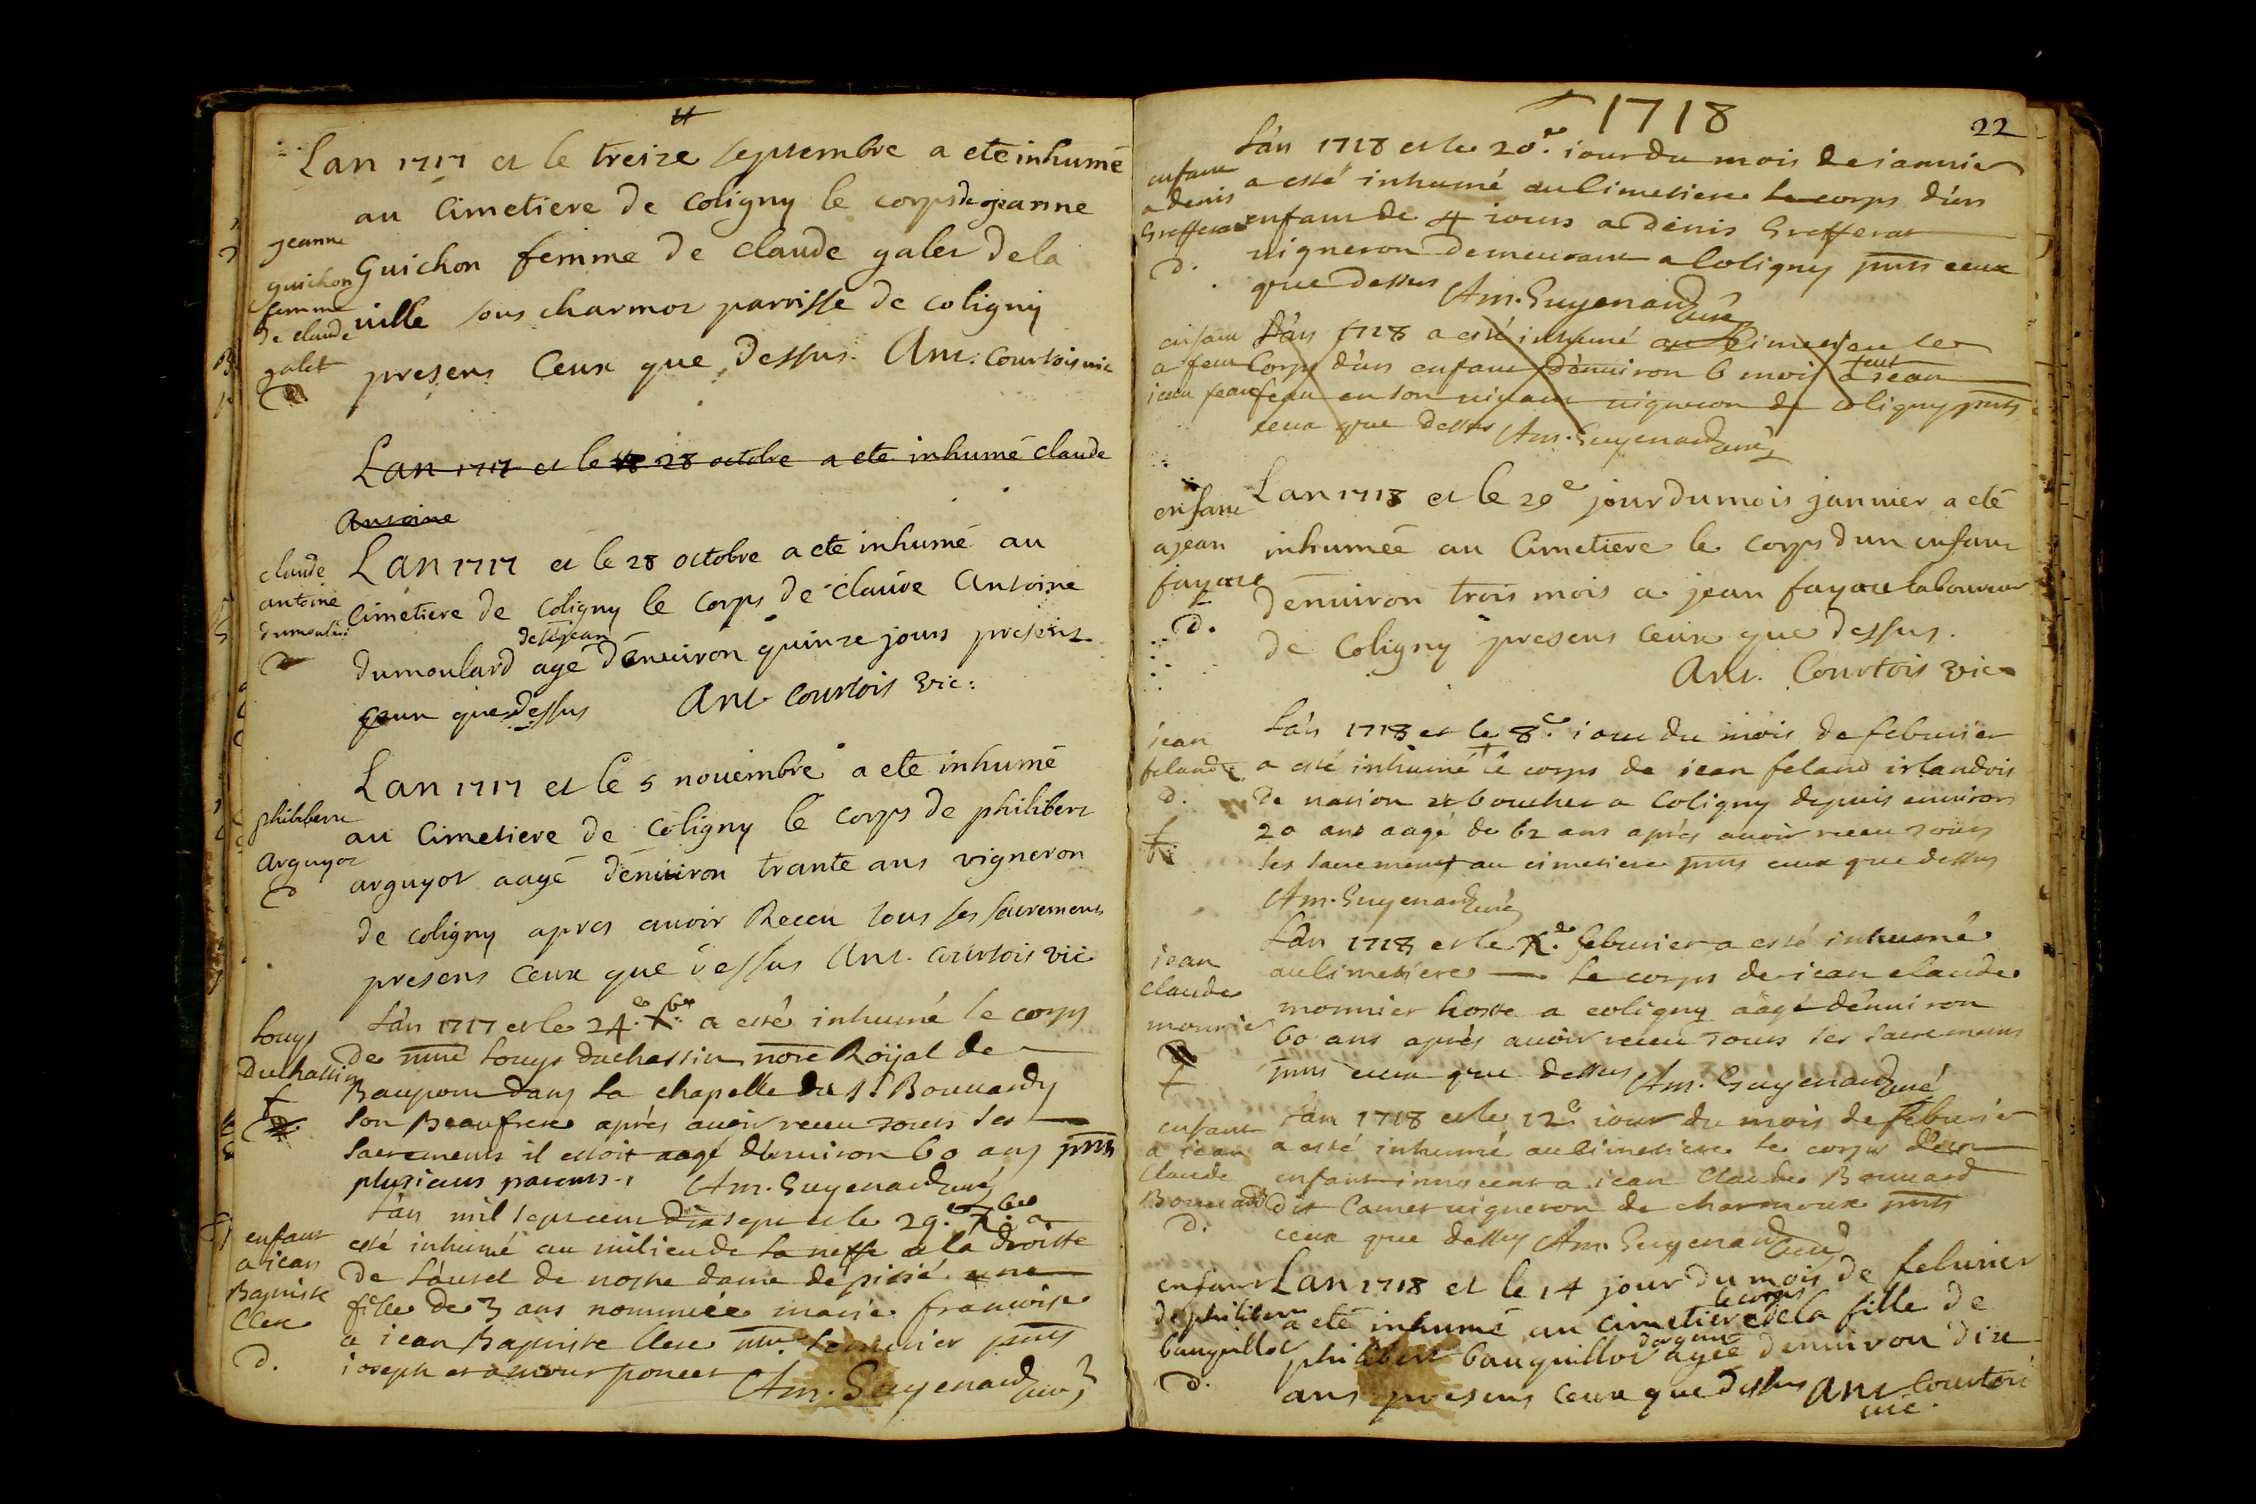 Lan 1717 et le treize septembre a ete inhumé
au Cimetiere de Coligny le corps de jeanne
jeanne
guichon
femme
de claude
galet
D
Guichon femme de claude galet de la
ville sous charmoz parrisse de coligny
presens Ceux que dessus. Ant. Courtois vic
Lan 1717 et le 28 octobre a ete inhumé claude
Antoine
claude
antoine
dumoulard
D
Lan 1717 et le 28 octobre a ete inhumé au
Cimetiere de Coligny le corps de claude Antoine
de jean
dumoulard agé denuiron quinze jours presens
ceux que dessus Ant. Courtois vic:
Lan 1717 et le 5 nouembre a ete inhumé
philibert
Arguyot
D
au Cimetiere de Coligny le corps de philibert
arguyot aagé denuiron trante ans vigneron
de coligny apres auoir Receu tous ses sacremens
presens ceux que dessus Ant. Courtois vic
Louys
Duchassin
L'an 1717 et le 24.e Xbre a esté inhumé le corps
de mre Louys duchassin nore Royal de
Beaupont dans la chapelle du Sr Bouuardy
son Beaufrere aprés auoir receu tous ses
sacremens il estoit aagé d'enuiron 60 ans pnts
plusieurs parents. Am. Guyenard curé
enfant
a jean
Baptiste
Clerc
d.
L'an mil sept cent dix sept et le 29.e Xbre a
esté inhumé au milieu de la neffe a la droitte
de l'autel de nostre dame de pitié une
fille de 3 ans nommée marie francoise
a jean Baptiste Clerc pnts
joseph et amour poncet Am. Guyenard curé
1718
22
enfant
a denis
Grefferat
d.
L'an 1718 et le 20.e iour du mois de ianuier
a esté inhumé au Cimetiere le corps d'un
enfant de 4 iours a denis Grefferat
vigneron demeurant a Coligny pnts ceux
que dessus Am. Guyenard curé
enfant
a feu
jean feau
L'an 1718 a esté inhumé au Cimetiere le
Corps d'un enfant d'enuiron 6 mois a feu jean
feau en son viuant vigneron de coligny pnts
ceux que dessus Am. Guyenard curé
enfant
a jean
fayare
d.
Lan 1718 et le 29e jour du mois januier a eté
inhumée au Cimetiere le corps dun enfant
denuiron trois mois a jean fayare laboureur
de Coligny presens ceux que dessus.
Ant. Courtois vic
jean
feland
d.
L'an 1718 et le 8.e iour du mois de feburier
a esté inhumé le corps de jean feland irlandois
de nation et boucher a Coligny depuis enuiron
20 ans aagé de 62 ans aprés auoir receu tous
les sacrements au cimetiere pnts ceux que dessus
Am. Guyenard curé
jean
claude
monnier
L'an 1718 et le X.e feburier a esté inhumé
au Cimetiere le corps de jean claude
monnier hoste a coligny aagé d'enuiron
60 ans aprés auoir receu tous ses sacremens
pnts ceux que dessus Am. Guyenard curé
enfant
a jean
Claude
Bouuard
d.
L'an 1718 et le 12e iour du mois de feburier
a esté inhumé au Cimetiere le corps d'un
enfant innocent a jean Claude Bouuard
dit Camet vigneron de charmoux pnts
ceux que dessus Am. Guyenard curé
enfant
de philibert
bauquillot
d.
Lan 1718 et le 14 jour du mois de feburier
a eté inhumé au Cimetiere le corps de la fille de
philibert bauquillot agée denuiron dix
ans presens ceux que dessus Ant Courtois
vic.